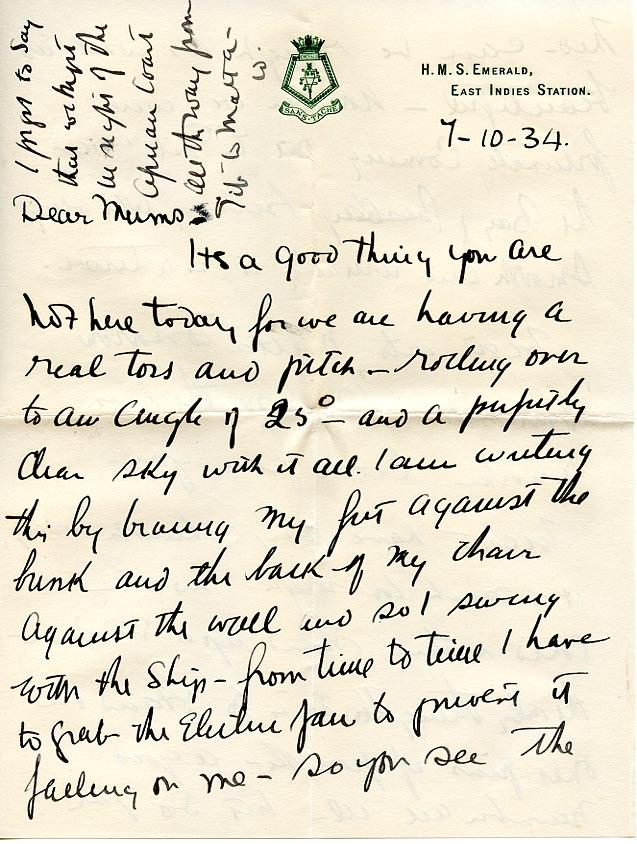 SANS-TACHE
H.M.S. EMERALD,
EAST INDIES STATION.
7-10-34.
I forgot to say
that we kept
in sight of the
African Coast
all the way from
Gib to Malta -
Dear Mums -
Its a good thing you are
not here today for we are having a
real toss and pitch - rolling over
to an angle of 25° - and a perfectly
clear sky with it all. I am writing
this by bracing my feet against the
bunk and the back of my chair
against the wall and so I swing
with the ship - from time to time I have
to grab the Electric fan to prevent it
falling on me - so you see the